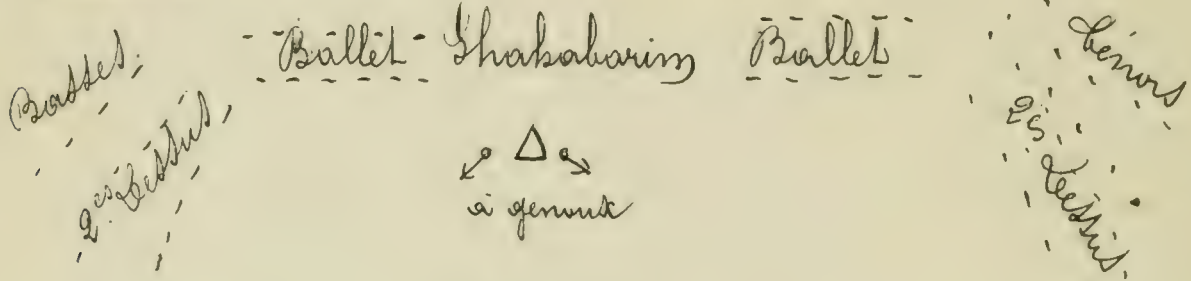 Basses.
2es Dessus.
Ballet Shakabarim Ballet
à genoux
Ténors
2es Dessus.